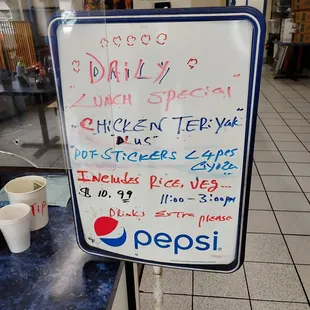 DAILY
"LUNCH SPECIAL"
CHICKEN TERIYAKI
"PLUS"
POT STICKERS <4pcs
Gyoza
Includes Rice, Veg...
$10.99 11:00-3:00pm
Drinks Extra please
pepsi
TIP